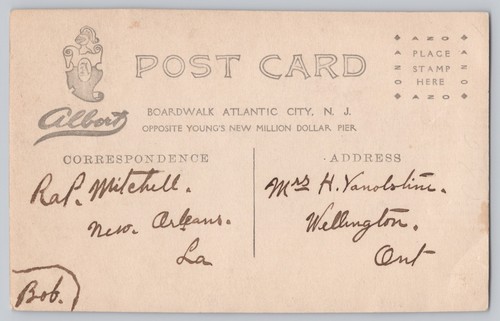 POST CARD
AZO
PLACE
STAMP
HERE
AZO
AZO
AZO
Albert
BOARDWALK ATLANTIC CITY, N. J.
OPPOSITE YOUNG'S NEW MILLION DOLLAR PIER
CORRESPONDENCE
ADDRESS
Mitchell.
New. Orleans.
La
Bob.
Mrs H.
Wellington.
Ont